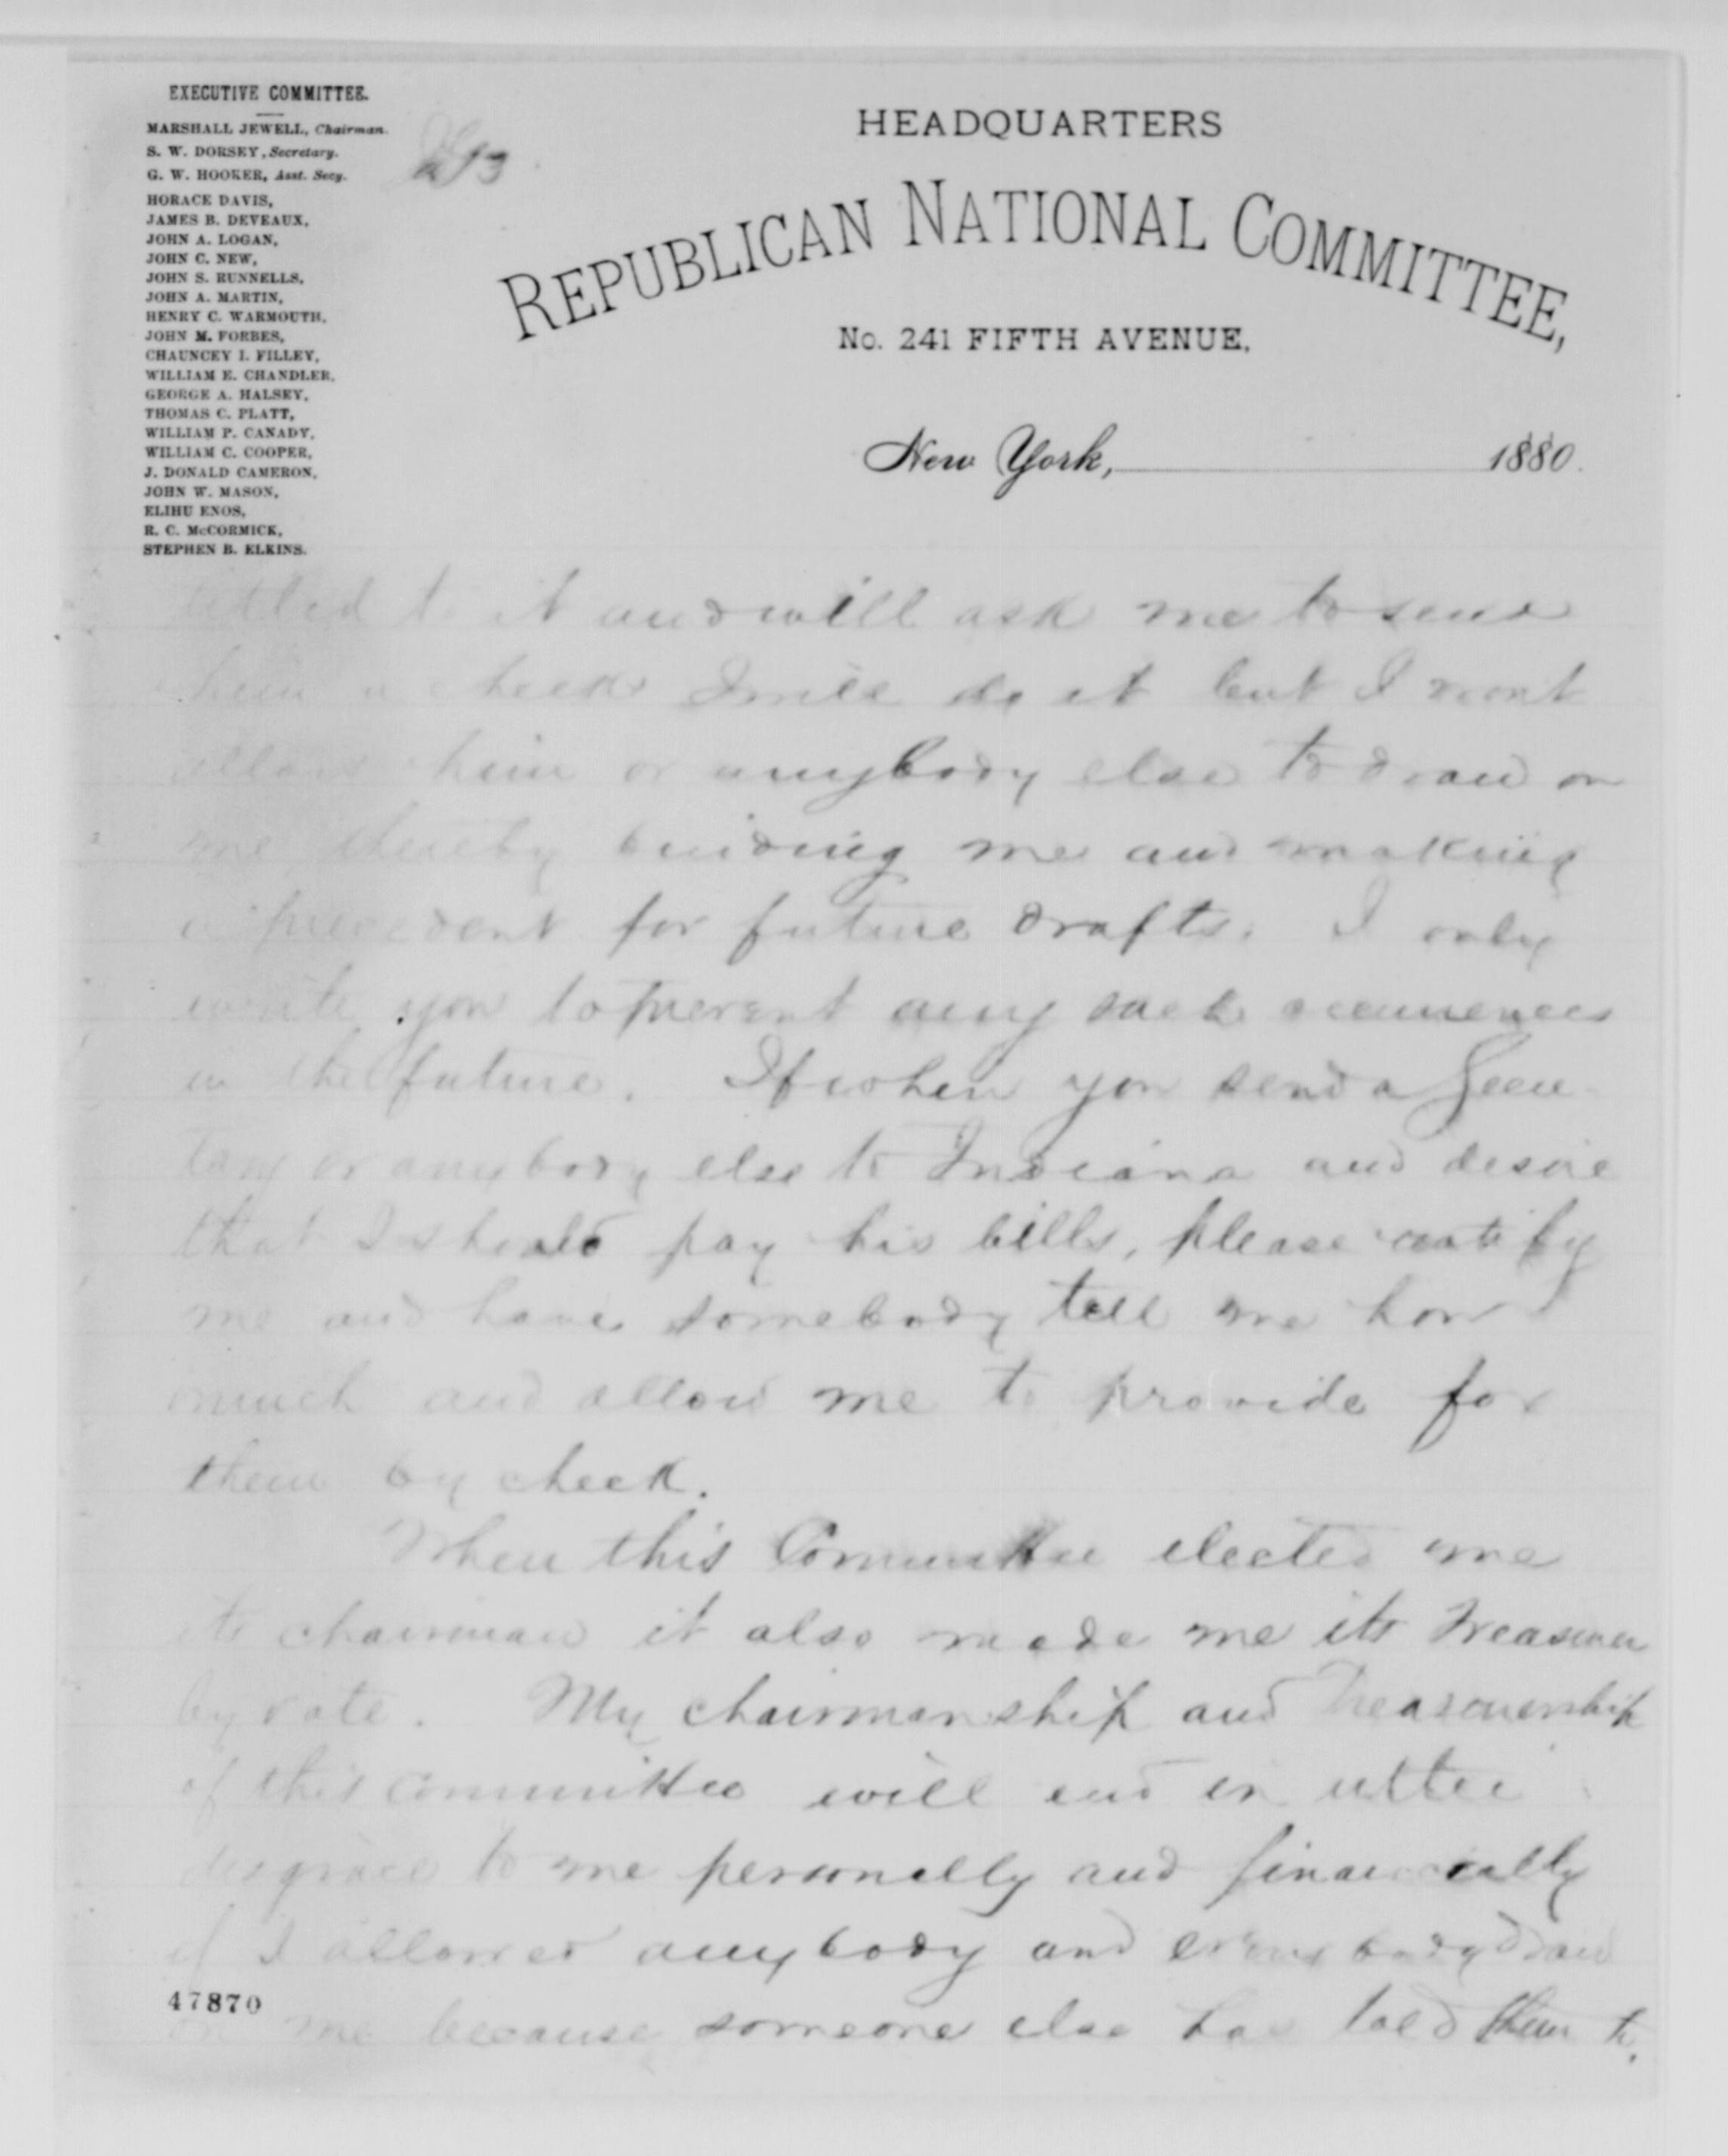 EXECUTIVE COMMITTEE.
MARSHALL JEWELL, Chairman.
S. W. DORSEY, Secretary.
G. W. HOOKER, Asst. Secy.
HORACE DAVIS,
JAMES B. DEVEAUX,
JOHN A. LOGAN,
JOHN C. NEW,
JOHN S. RUNNELLS,
JOHN A. MARTIN,
HENRY C. WARMOUTH,
JOHN M. FORBES,
CHAUNCEY I. FILLEY,
WILLIAM E. CHANDLER,
GEORGE A. HALSEY,
THOMAS C. PLATT,
WILLIAM P. CANADY,
WILLIAM C. COOPER,
J. DONALD CAMERON,
JOHN W. MASON,
ELIHU ENOS,
R. C. McCORMICK,
STEPHEN B. ELKINS.
HEADQUARTERS
REPUBLICAN NATIONAL COMMITTEE,
No. 241 FIFTH AVENUE,
New York, 1880.
titled to it and will ask me to send
him a check I will do it but I wont
allow him or anybody else to draw on
me thereby binding me and making
a precedent for future drafts. I only
write you to prevent any such occurrences
in the future. If when you send a Secre-
tary or anybody else to Indiana and desire
that I should pay his bills, please notify
me and have somebody tell me how
much and allow me to provide for
them by check.
When this Committee elected me
its chairman it also made me its Treasurer
by vote. My chairmanship and Treasurership
of this committee will end in utter
disgrace to me personally and financially
if I allowed anybody and everybody draw
on me because someone else has told them to.
47870